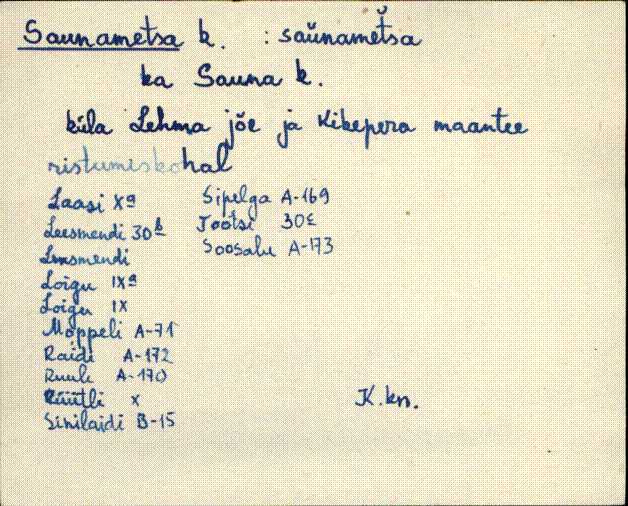 Saunametsa k. : saŭnamet̆sa
ka Sauna k.
küla Lehma jõe ja Kikepera maantee
ristumiskohal
Laasi Xa
Leesmendi 30b
Linsmendi
Loigu IXa
Loigu IX
Moppeli A-71
Raidi A-172
Ruuli A-170
Rüütli X
Sinilaidi B-15
Sipelga A-169
Tootsi 30c
Soosalu A-173
K.kn.